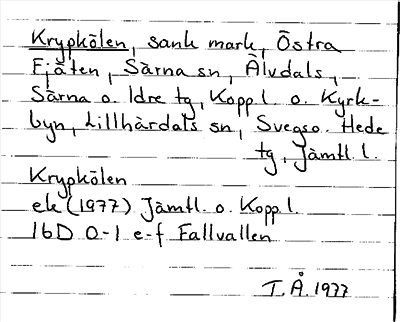 Krypkölen, sank mark, Östra
Fjäten, Särna sn, Älvdals,
Särna o. Idre tg, Kopp.l. o. Kyrk-
byn, Lillhärdals sn, Svegs o. Hede
tg, Jämtl. l.
Krypkölen
ek (1977) Jämtl. o. Kopp.l.
16D 0-1 e-f Fallvallen
T.Å. 1977